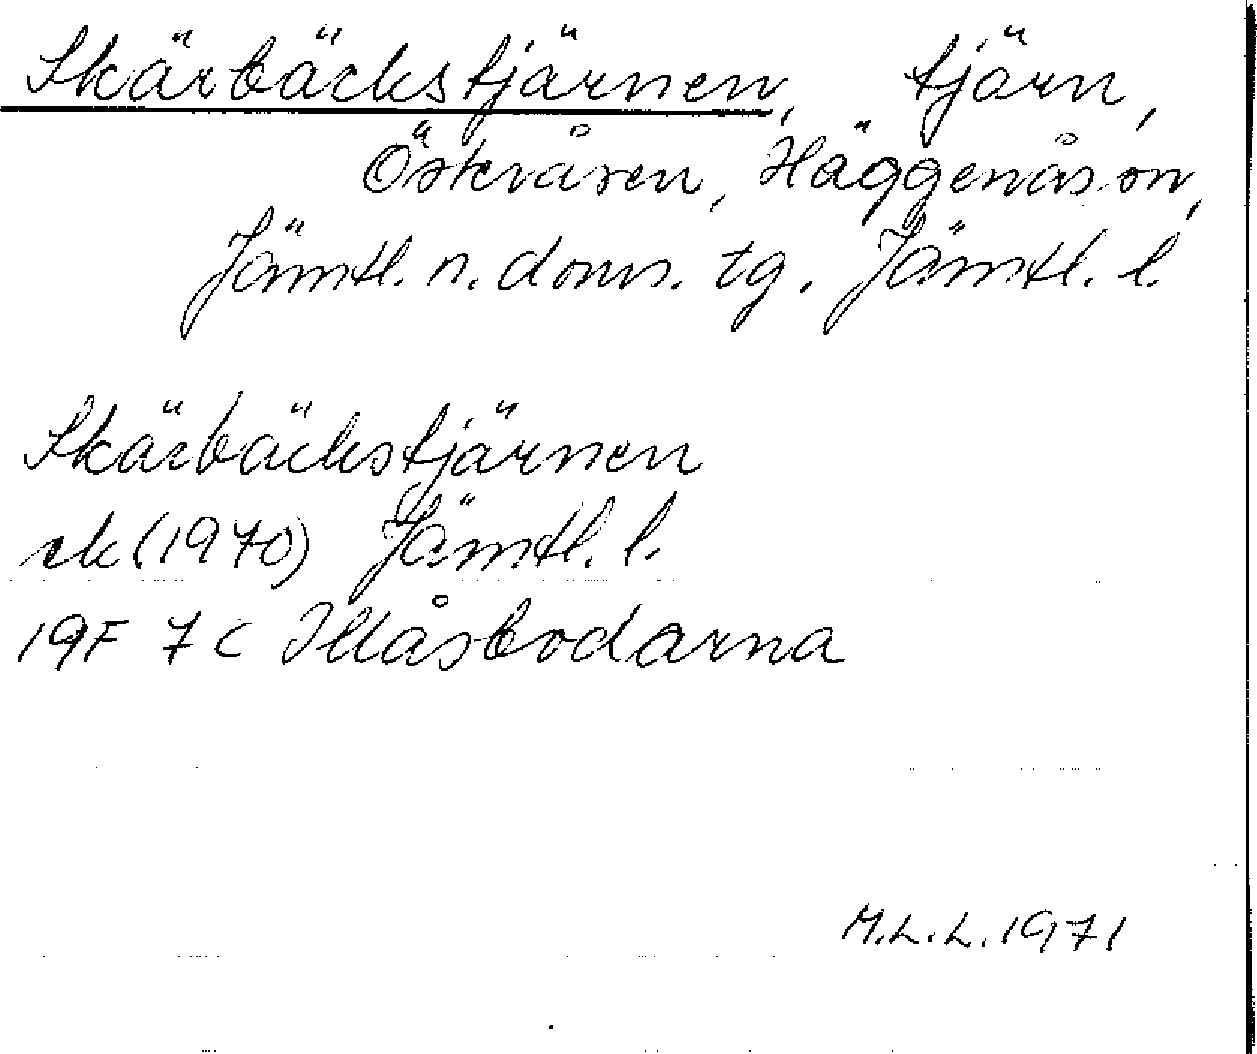 Skärbäckstjärnen, tjärn,
Österåsen, Häggenås sn,
Jämtl. n. doms. tg. Jämtl. l.
Skärbäckstjärnen
rk (1970) Jämtl. l.
19F 7 C Illåsbodarna
M.L.L. 1971